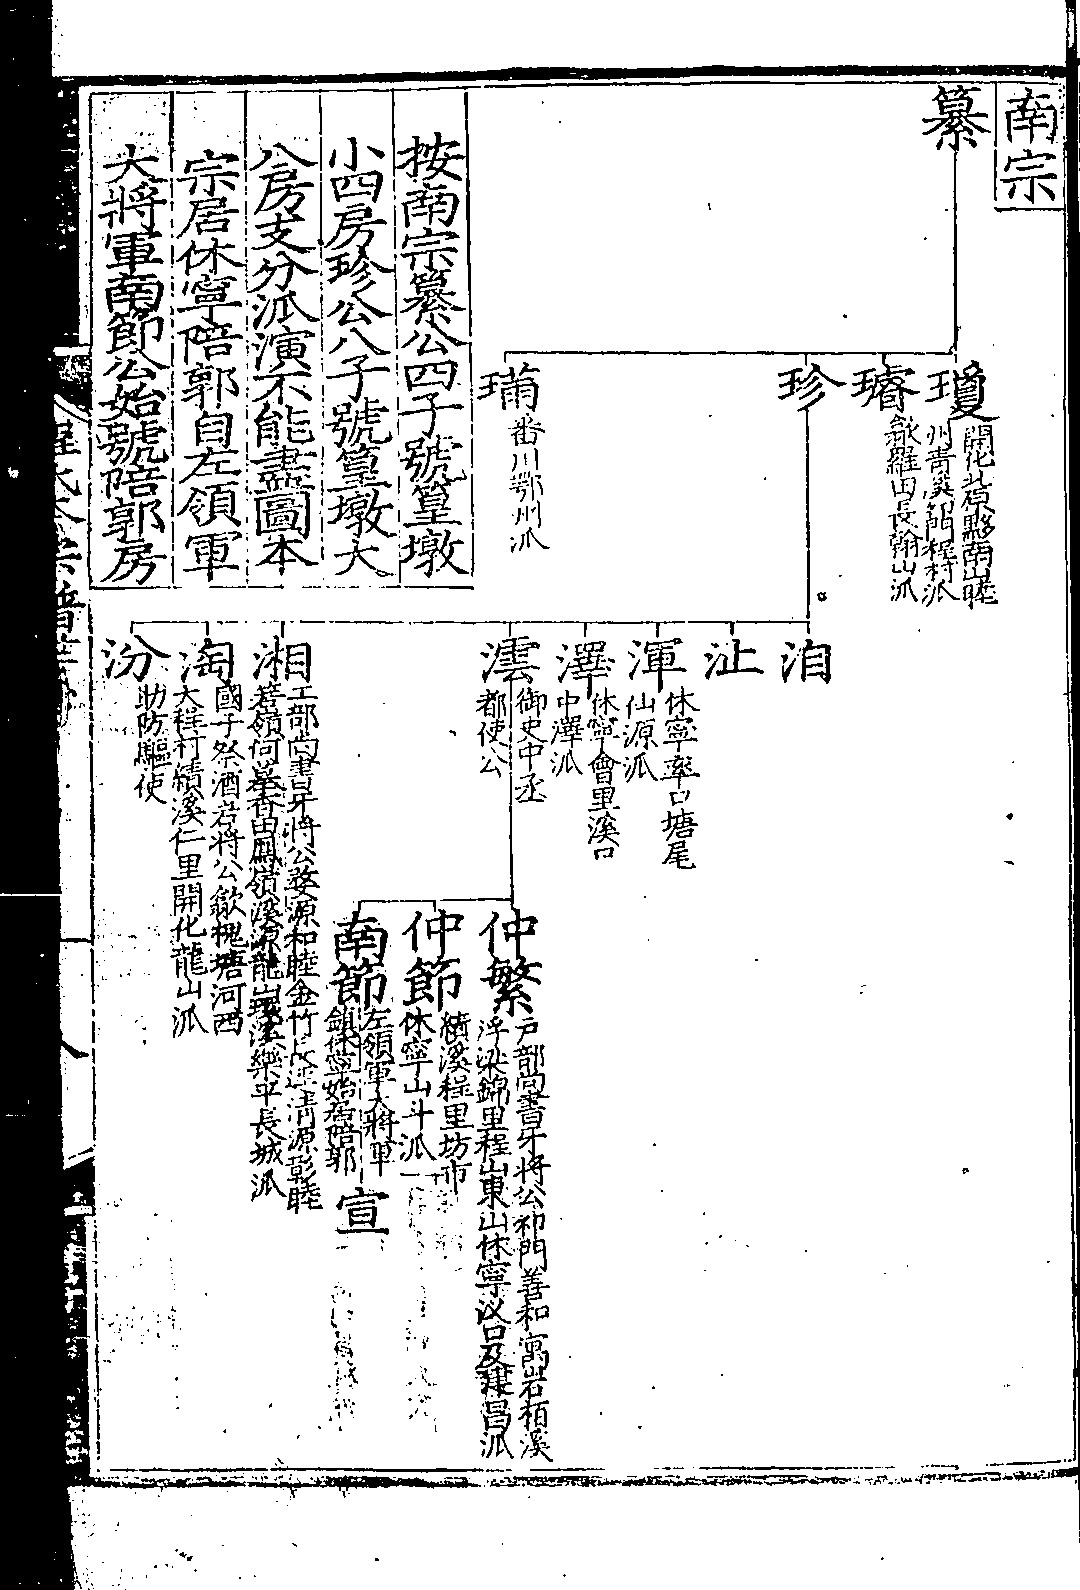 南宗
纂
瓊
開化北原黟南山睦
州青溪祁門程村派
璿
歙羅田長翰山派
珍
番川鄂州派
洎
沚
渾
休寧率口塘尾
仙源派
澤
休寧會里溪口
中澤派
澐
御史中丞
都使公
湘
工部尚書牙將公婺源和睦金竹
清源彰睦
樂平長城派
淘
國子祭酒岩將公歙槐塘河西
大程村績溪仁里開化龍山派
汾
助防驅使
仲繁
戶部尚書牙將公祁門善和窩岩栢溪
浮梁錦里程山東山休寧汊口及建昌派
仲節
績溪程里坊市
休寧山斗派
南節
左領軍大將軍
鎮休寧始居陪郭
宣
按南宗纂公四子號篁墩
小四房珍公八子號篁墩大
八房支分派演不能盡圖本
宗居休寧陪郭自左領軍
大將軍南節公始號陪郭房